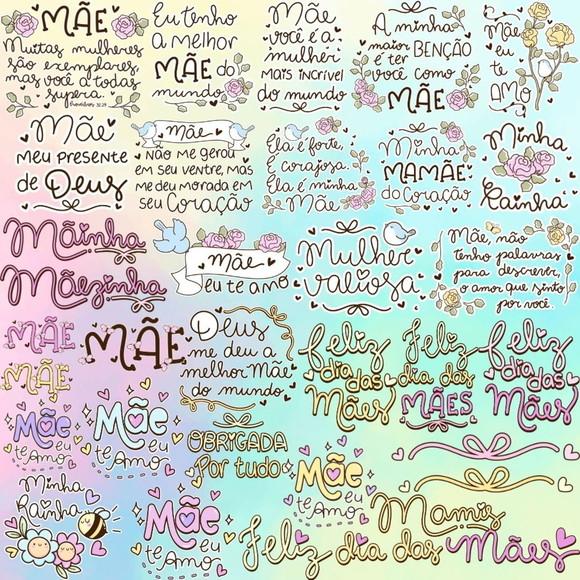 MÃE
Muitas mulheres
são exemplares,
mas você a todas
supera.
Provérbios 31:29
Eu tenho
a melhor
MÃE do
mundo
Mãe
você é a
mulher
MAIS INCRÍVEL
do mundo
A minha
maior BENÇÃO
é ter
você como
MÃE
Mãe
eu
te
AMO
Mãe
MEU PRESENTE
de Deus
Mãe
NÃO me gerou
em seu ventre, mas
me deu morada em
seu Coração
Ela é forte,
É corajosa.
Ela é minha
Mãe
Minha
MAMÃE
do Coração
Minha
Rainha
Mãinha
Mãezinha
Mãe
eu te amo
Mulher
valiosa
Mãe, não
tenho palavras
para descrever,
o amor que sinto
por você
MÃE
MÃE
MÃE
Deus
me deu a
melhor Mãe
do mundo
Feliz
dia das
Mães
Feliz
dia das
MÃES
Feliz
dia das
Mães
Mãe
eu
te Amo
Mãe
eu
te Amo
OBRIGADA
Por tudo
Mãe
eu
te Amo
Minha
Rainha
Mãe
eu
te Amo
Mamis
Feliz dia das Mães